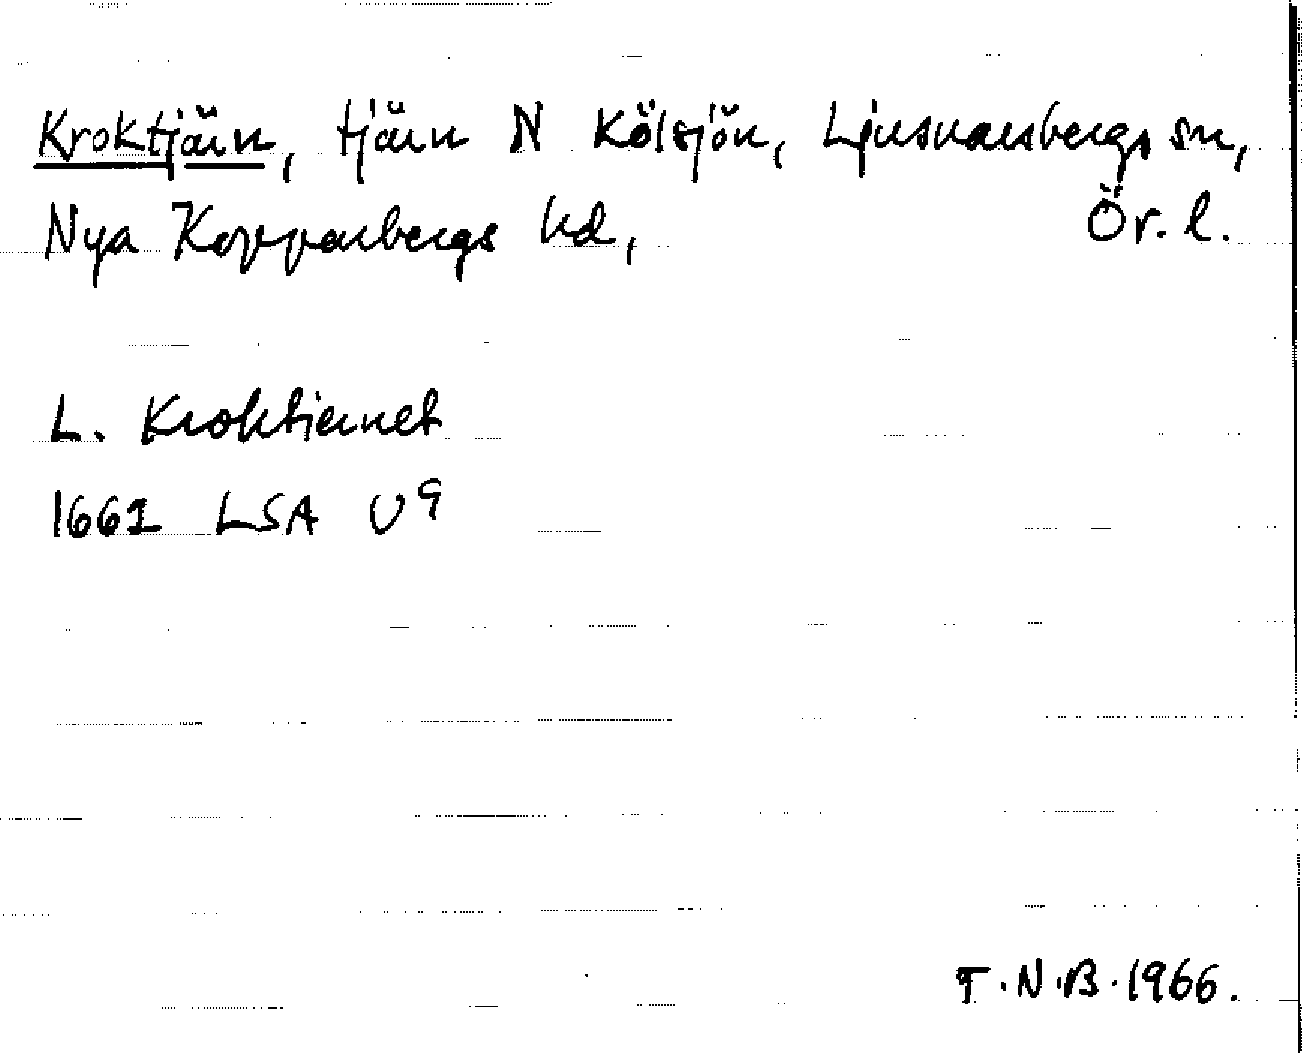 Krokttjärn, tjärn N Kölsjön, Ljusnarsbergs sn,
Nya Kopparbergs hd, Ör. l.
L. Kroktiernet
1661 LSA U9
T.N.B. 1966.